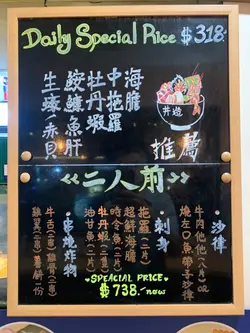 Daily Special Rice $318.
海膽
中拖羅
牡丹蝦
鮟鱇魚肝
生蠔/赤貝
丼遊
推薦
二人前
沙律
牛肉他他
OR
燒左口魚帶子沙律
刺身
拖羅(二片)
超鮮海膽
時令魚(二片)
牡丹蝦
油甘魚(二片)
串燒炸物
牛舌(二串)雞
雞翼(二串)
一份
SPEACIAL PRICE
$738.-now